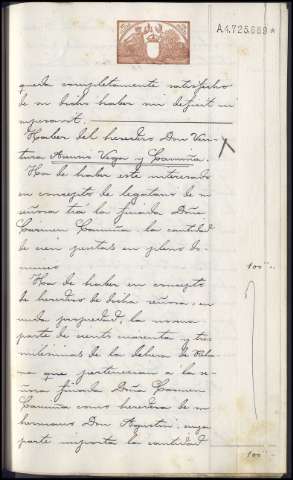 A4.725.669*
queda completamente satisfecho
de su dicho haber sin deficit ni
superavit.
Haber del heredero Don Ven-
tura Asensio Vega y Camiña.
Ha de haber este interesado
en concepto de legatario de su
señora tía la finada Doña
Carmen Camiña la cantidad
de cien pesetas en pleno do-
minio
100"..
Ha de haber en concepto
de heredero de dicha señora, en
nuda propiedad, la novena
parte de ciento cuarenta y tres
milésimas de la dehesa de
que pertenecian a la se-
ñora finada Doña Carmen
Camiña como heredera de su
hermano Don Agustin, cuya
parte importa la cantidad
100"..